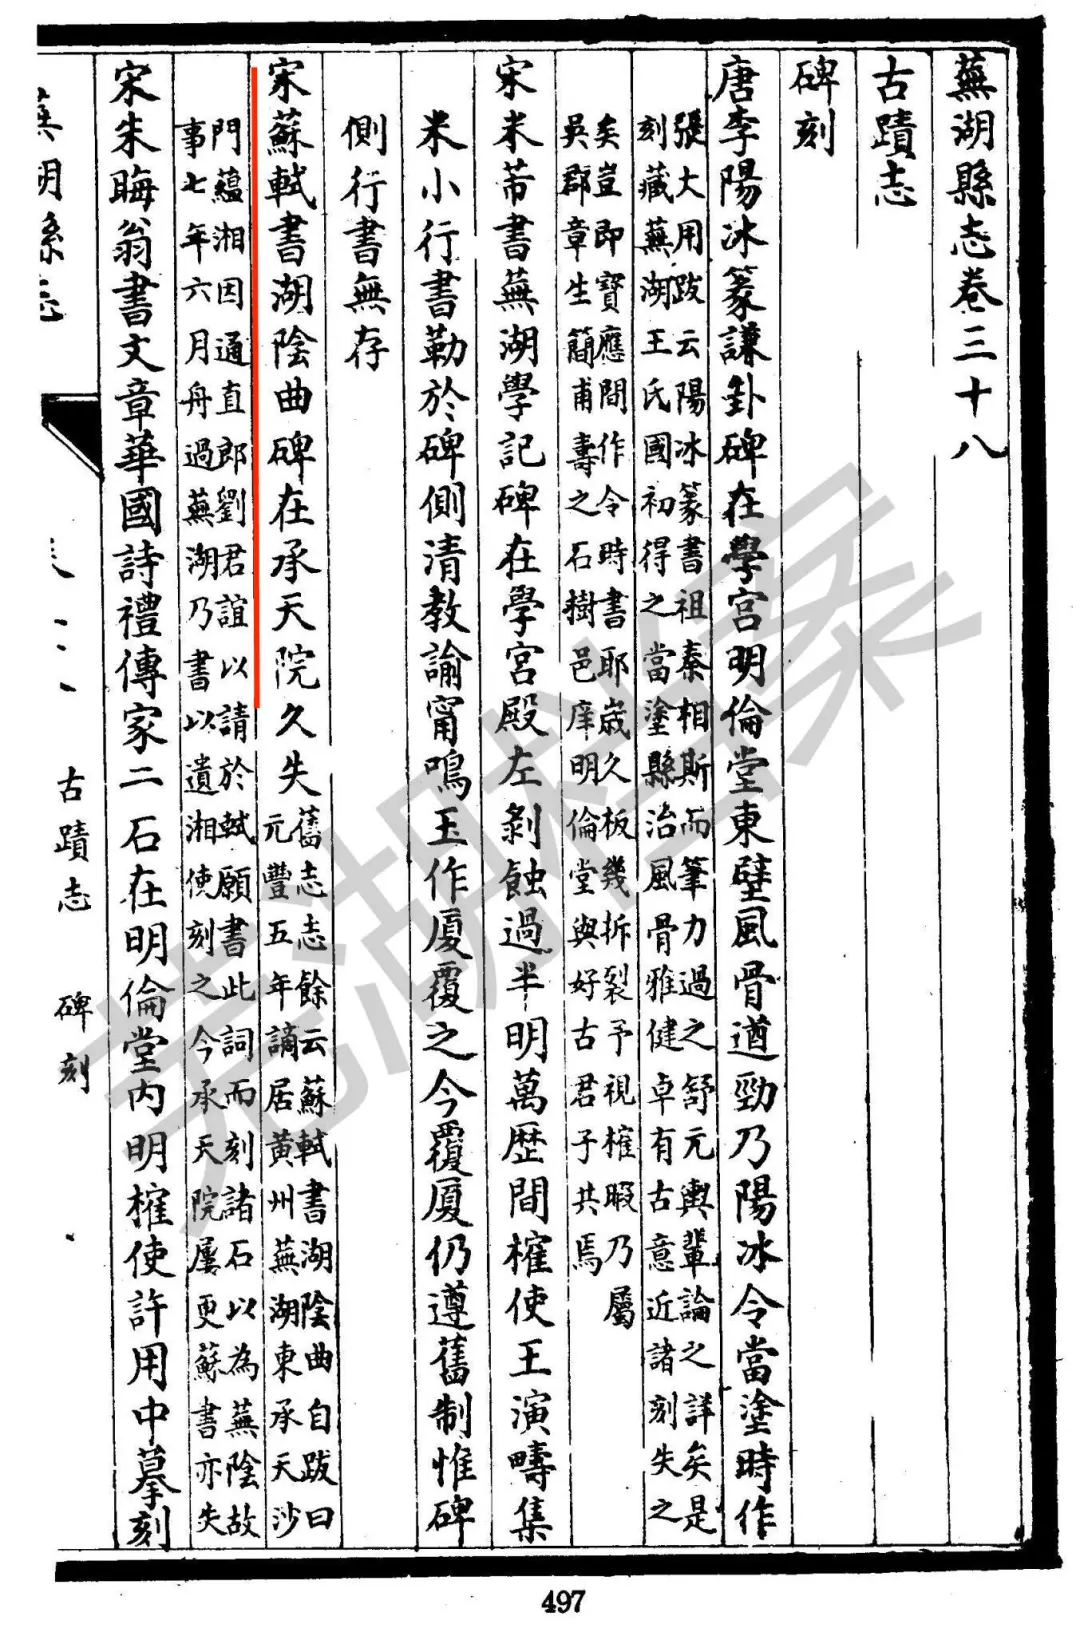 蕪湖縣志卷三十八
古蹟志
碑刻
唐李陽冰篆謙卦碑在學宮明倫堂東壁風骨遒勁乃陽冰令當塗時作
張大用跋云陽冰篆書祖秦相斯而筆力過之舒元輿輩論之詳矣是
刻藏蕪湖王氏國初得之當塗縣治風骨雅健卓有古意近諸刻失之
矣豈即寶應間作令時書耶歲久板幾拆裂予視榷暇乃屬
吳郡章生簡甫壽之石樹邑庠明倫堂與好古君子共焉
宋米芾書蕪湖學記碑在學宮殿左剝蝕過半明萬歷間榷使王演疇集
米小行書勒於碑側清教諭甯鳴玉作廈覆之今覆廈仍遵舊制惟碑
側行書無存
宋蘇軾書湖陰曲碑在承天院久失
舊志志餘云蘇軾書湖陰曲自跋曰
元豐五年謫居黃州蕪湖東承天沙
門蘊湘因通直郎劉君誼以請於軾願書此詞而刻諸石以為蕪陰故
事七年六月舟過蕪湖乃書以遺湘使刻之今承天院屢更蘇書亦失
宋朱晦翁書文章華國詩禮傳家二石在明倫堂內明榷使許用中摹刻
蕪湖縣志
古蹟志 碑刻
497
芜湖档案